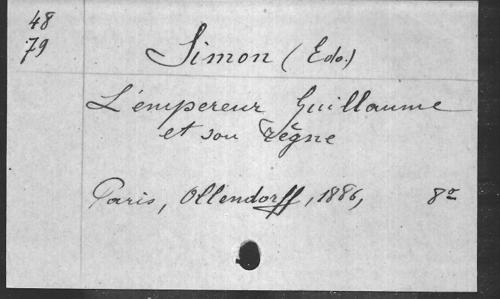 48
79
Simon (Edo.)
L'empereur Guillaume
et son règne
Paris, Ollendorff, 1886, 8º